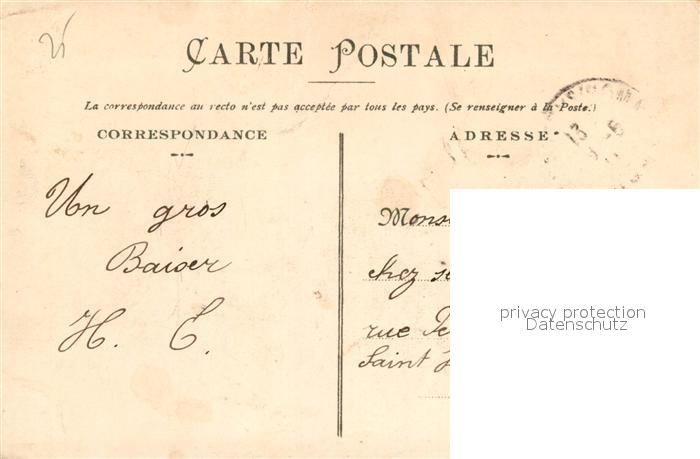 25
CARTE POSTALE
La correspondance au recto n'est pas acceptée par tous les pays. (Se renseigner à la Poste.)
CORRESPONDANCE
ADRESSE
Un gros
Baiser
H. C.
Mons
chez
rue
Saint
privacy protection
Datenschutz